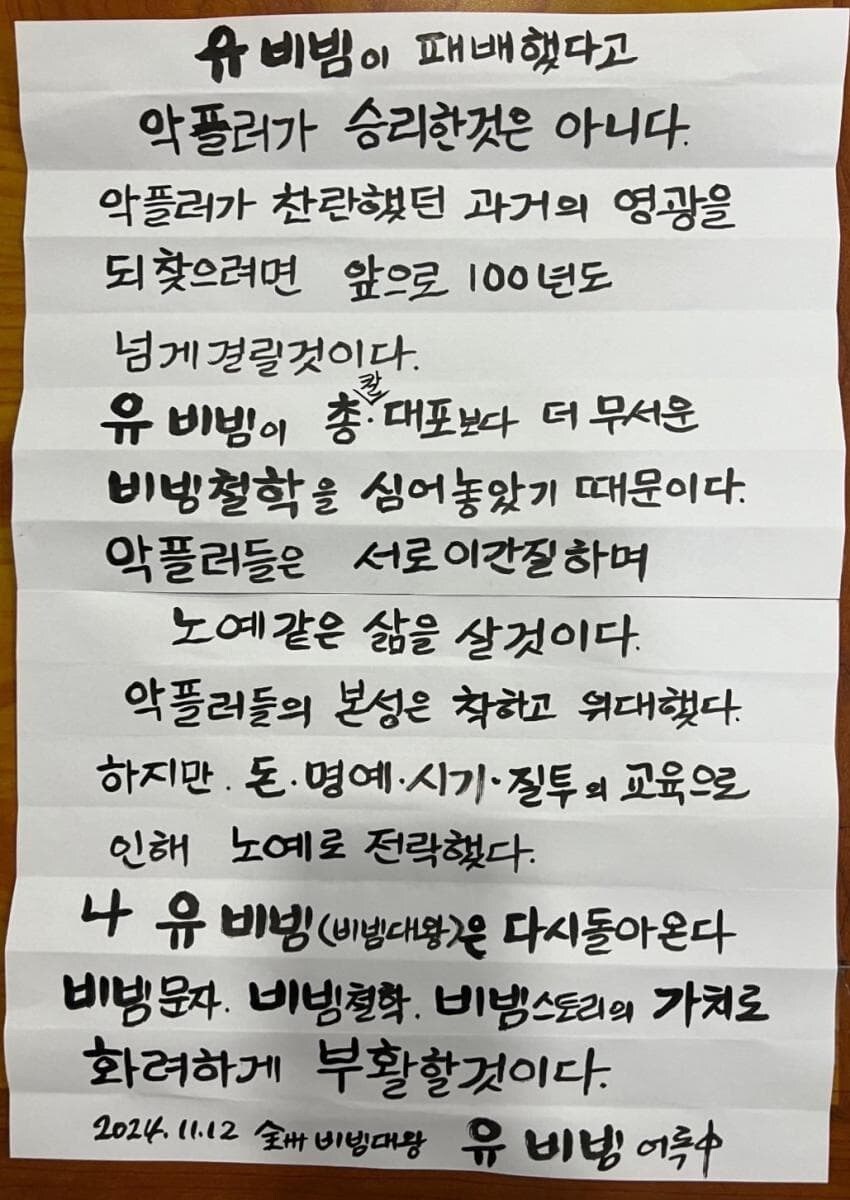 유비빔이 패배했다고
악플러가 승리한것은 아니다.
악플러가 찬란했던 과거의 영광을
되찾으려면 앞으로 100년도
넘게걸릴것이다.
유비빔이 총·칼·대포보다 더 무서운
비빔철학을 심어놓았기 때문이다.
악플러들은 서로이간질하며
노예같은 삶을 살것이다.
악플러들의 본성은 착하고 위대했다.
하지만. 돈·명예·시기·질투의 교육으로
인해 노예로 전락했다.
나 유비빔(비빔대왕)은 다시돌아온다
비빔문자. 비빔철학. 비빔스토리의 가치로
화려하게 부활할것이다.
2024.11.12 全州 비빔대왕 유비빔 어록中